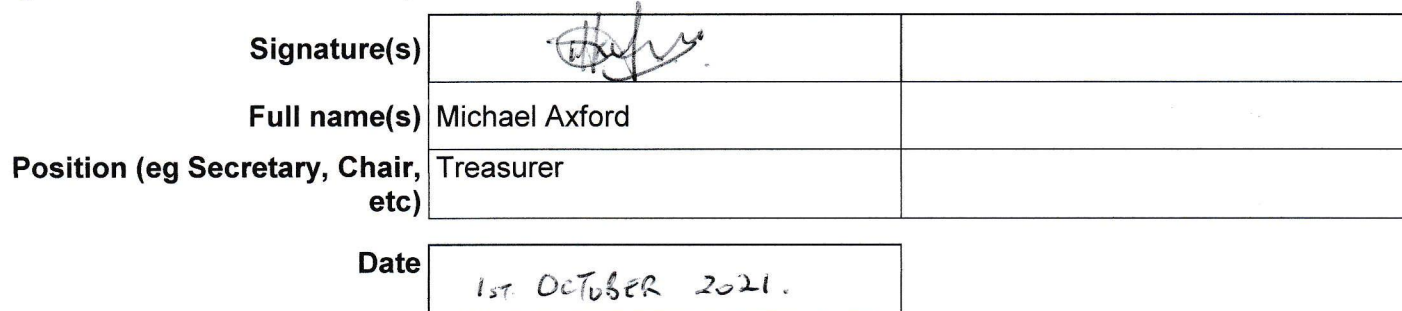 Signature(s)
Full name(s) Michael Axford
Position (eg Secretary, Chair, Treasurer
etc)
Date
1ST OCTOBER 2021.